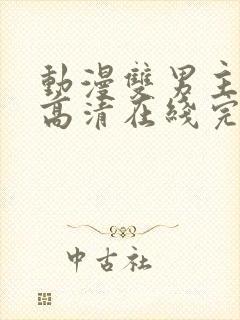 動漫雙男主
高清在綫完
中古社